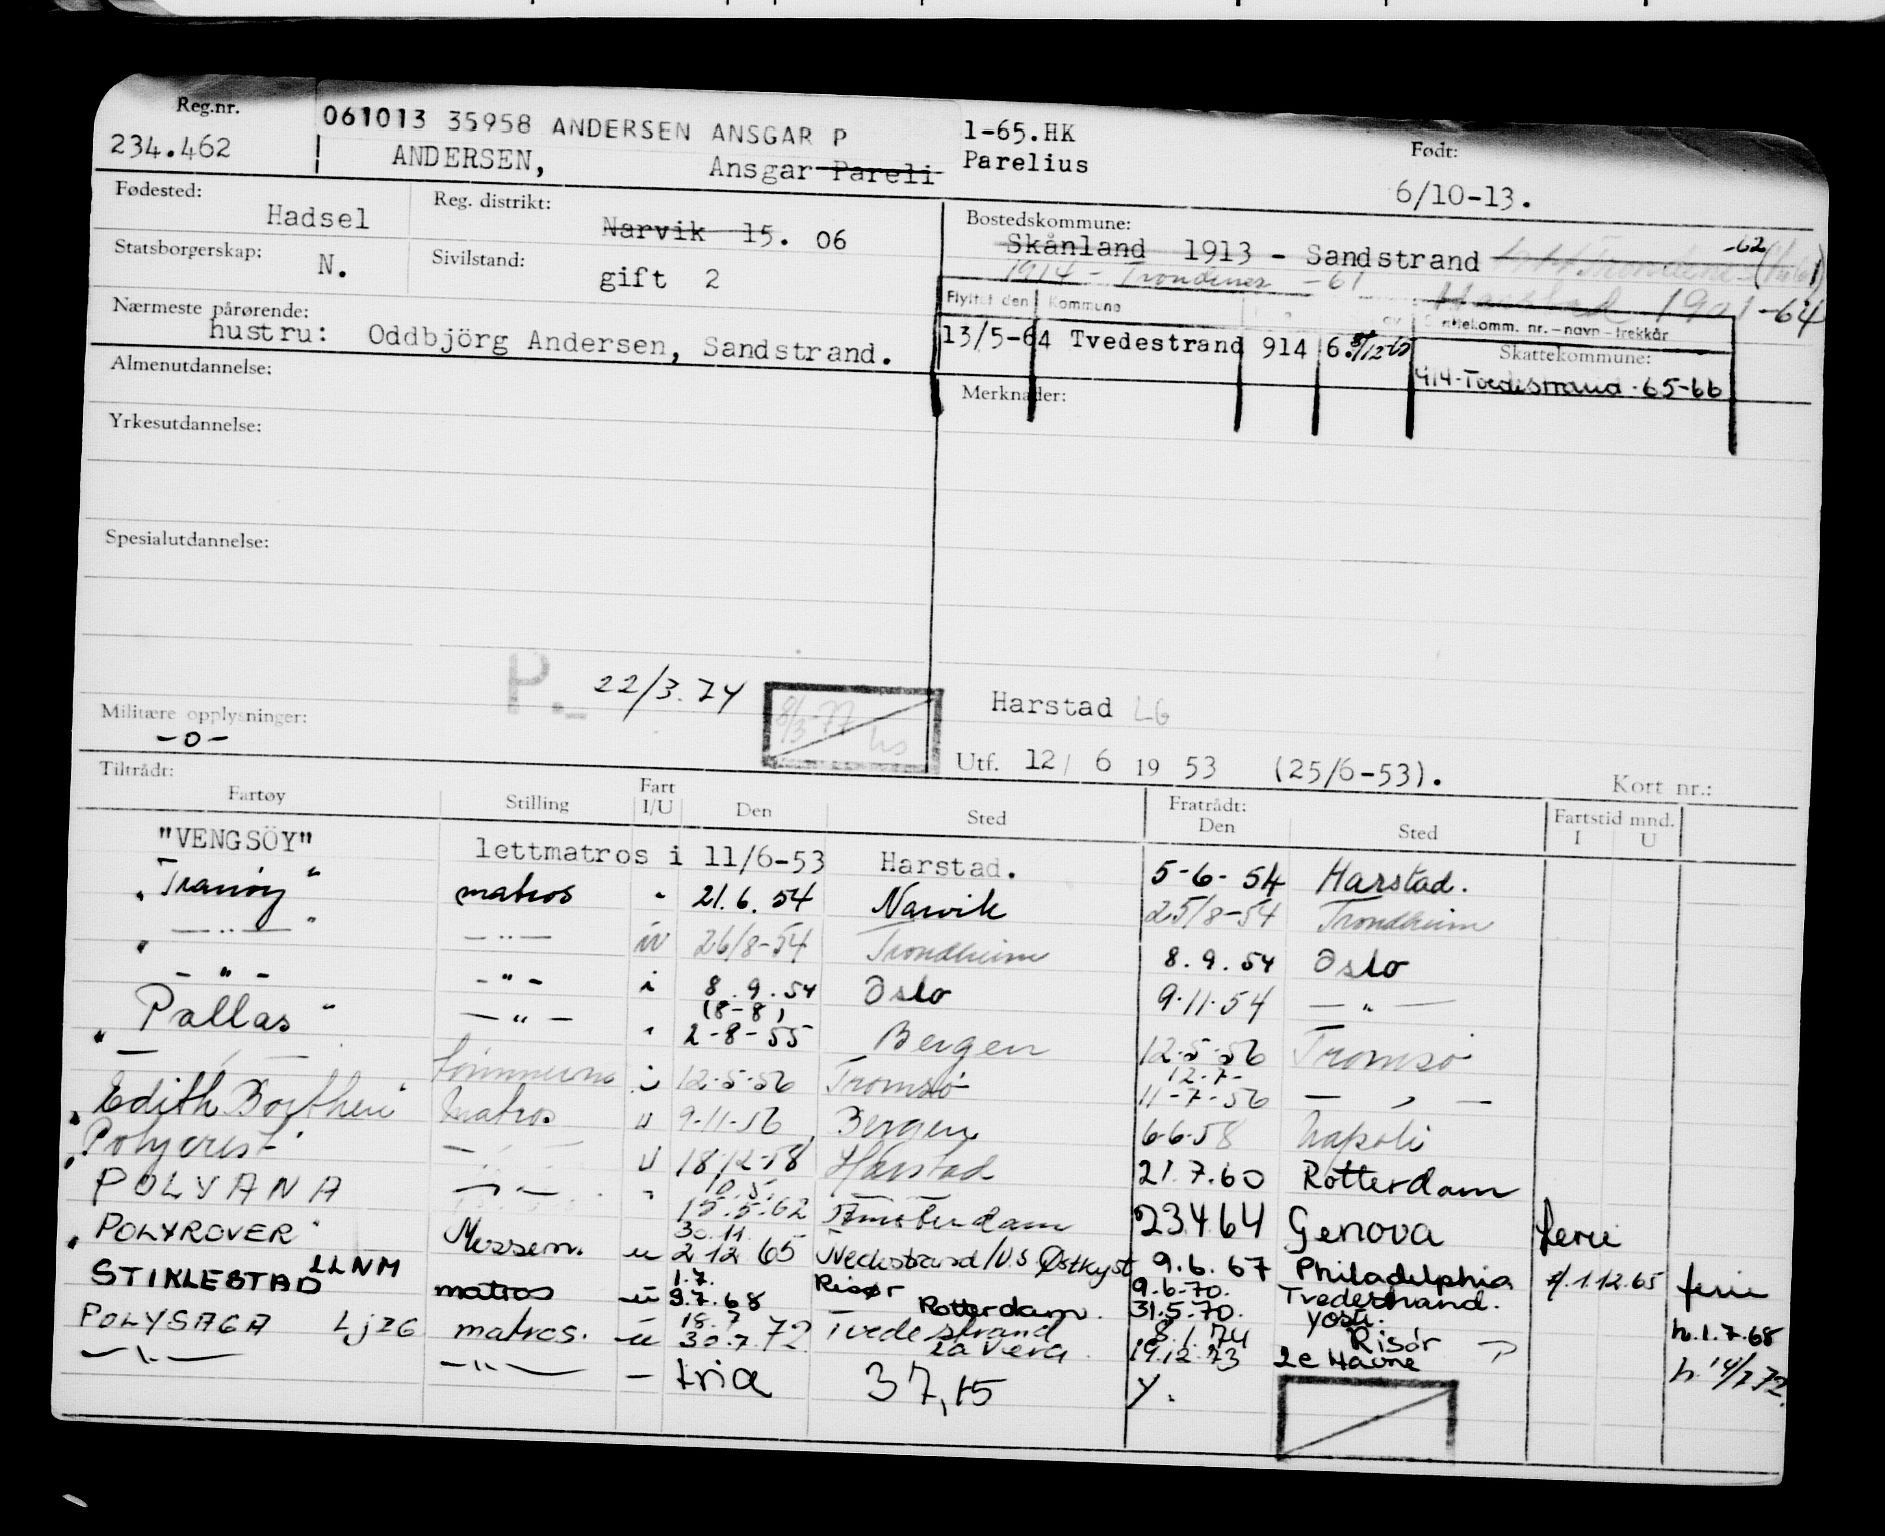 Reg.nr. 061013 35958 ANDERSEN ANSGAR P 1-65.HK Født:
234.462 ANDERSEN, Ansgar Pareli Parelius 6/10-13.
Fødested: Hadsel Reg. distrikt: Narvik 15. 06 Bostedskommune: Skånland 1913 - Sandstrand -62
1914 - Trondenes -61 Harstad 1901-64
Statsborgerskap: N. Sivilstand: gift 2
Flyttet den Kommune av Skattekomm. nr. - navn - trekkår
Nærmeste pårørende: hustru: Oddbjörg Andersen, Sandstrand.
13/5-64 Tvedestrand 914 6 Skattekommune:
914-Tvedestrand-65-66
Almenutdannelse: Merknader:
Yrkesutdannelse:
Spesialutdannelse:
P. 22/3.74
8/3-77
Harstad LG
Militære opplysninger: -0-
Utf. 12/ 6 19 53 (25/6-53).
Tiltrådt: Kort nr.:
Fartøy Stilling Fart I/U Den Sted Fratrådt: Den Sted Fartstid mnd. I U
"VENGSÖY" lettmatros i 11/6-53 Harstad. 5-6-54 Harstad.
"Tranöy" matros " 21.6.54 Narvik 25/8-54 Trondheim
" — " — " — " — 26/8-54 Trondheim 8.9.54 Oslo
- " - - " - i 8.9.54 Oslo 9.11.54 — " —
"Pallas" — " — " (8-8) 2-8-55 Bergen 12.5.56 Tromsø
— " — i 12.5.56 Tromsø 12.7.- 11-7-56 — " —
"Edith Borthen" Matros u 9.11.56 Bergen 6.6.58 Napoli
"Polycrest" — " — u 18.12.58 Harstad 21.7.60 Rotterdam
POLYANA — " — " 10.5. 15.5.62 Amsterdam 23.4.64 Genova ferie
"POLYROVER" Messem. u 30.11 2.12.65 Nedestrand/U.S Østkyst 9.6.67 Philadelphia f/1.12.65 ferie
STIKLESTAD LLNM matros u 1.7. 3.7.68 Risør Rotterdam. 9.6.70. 31.5.70. Tvedestrand. h.1.7.68
POLYSAGA LJZG matros. u 18.7 30.7.72 Tvedestrand La Vera 8.1.74 19.12.73 Risör Le Havre h. 14/7.72
— " — — " — — tria 37,15 y.